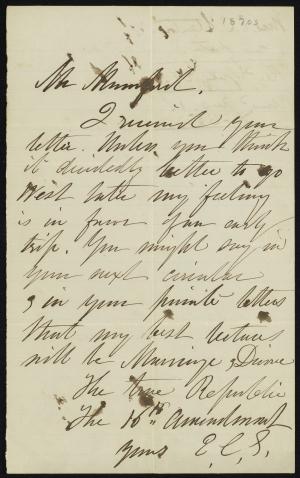 1870s
Mr Mumford.
I received your
letter. Unless you think
it decidedly better to go
West later my feeling
is in favor of an early
trip. You might say in
your next circular
& in your private letters
that my best lectures
will be Marriage & Divorce
The true Republic
The 16th amendment
yours E. C. S.